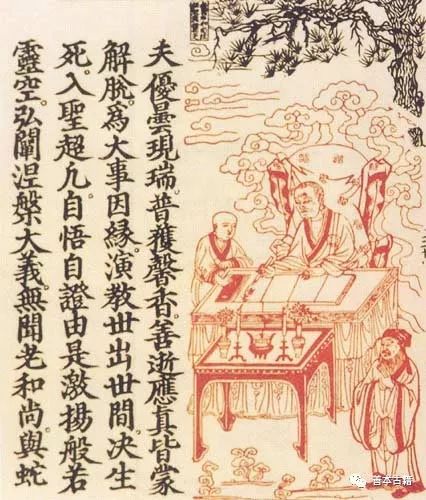 夫優曇現瑞。普獲馨香。善逝應真。皆蒙
解脫。為大事因緣。演教世出世間。決生
死。入聖超凡。自悟自證。由是激揚般若
靈空。弘闡涅槃大義。無聞老和尚與蛇
善本古籍